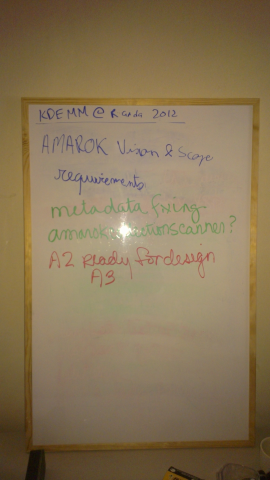 KDEMM @ Randa 2012
AMAROK Vision & Scope
requirements
metadata fixing-
amarokcollectionscanner?
A2 Ready for design
A3